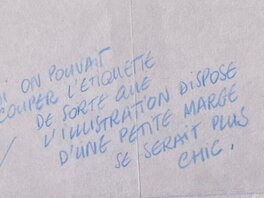 SI ON POUVAIT
COUPER L'ETIQUETTE
DE SORTE QUE
L'ILLUSTRATION DISPOSE
D'UNE PETITE MARGE
SE SERAIT PLUS
CHIC.